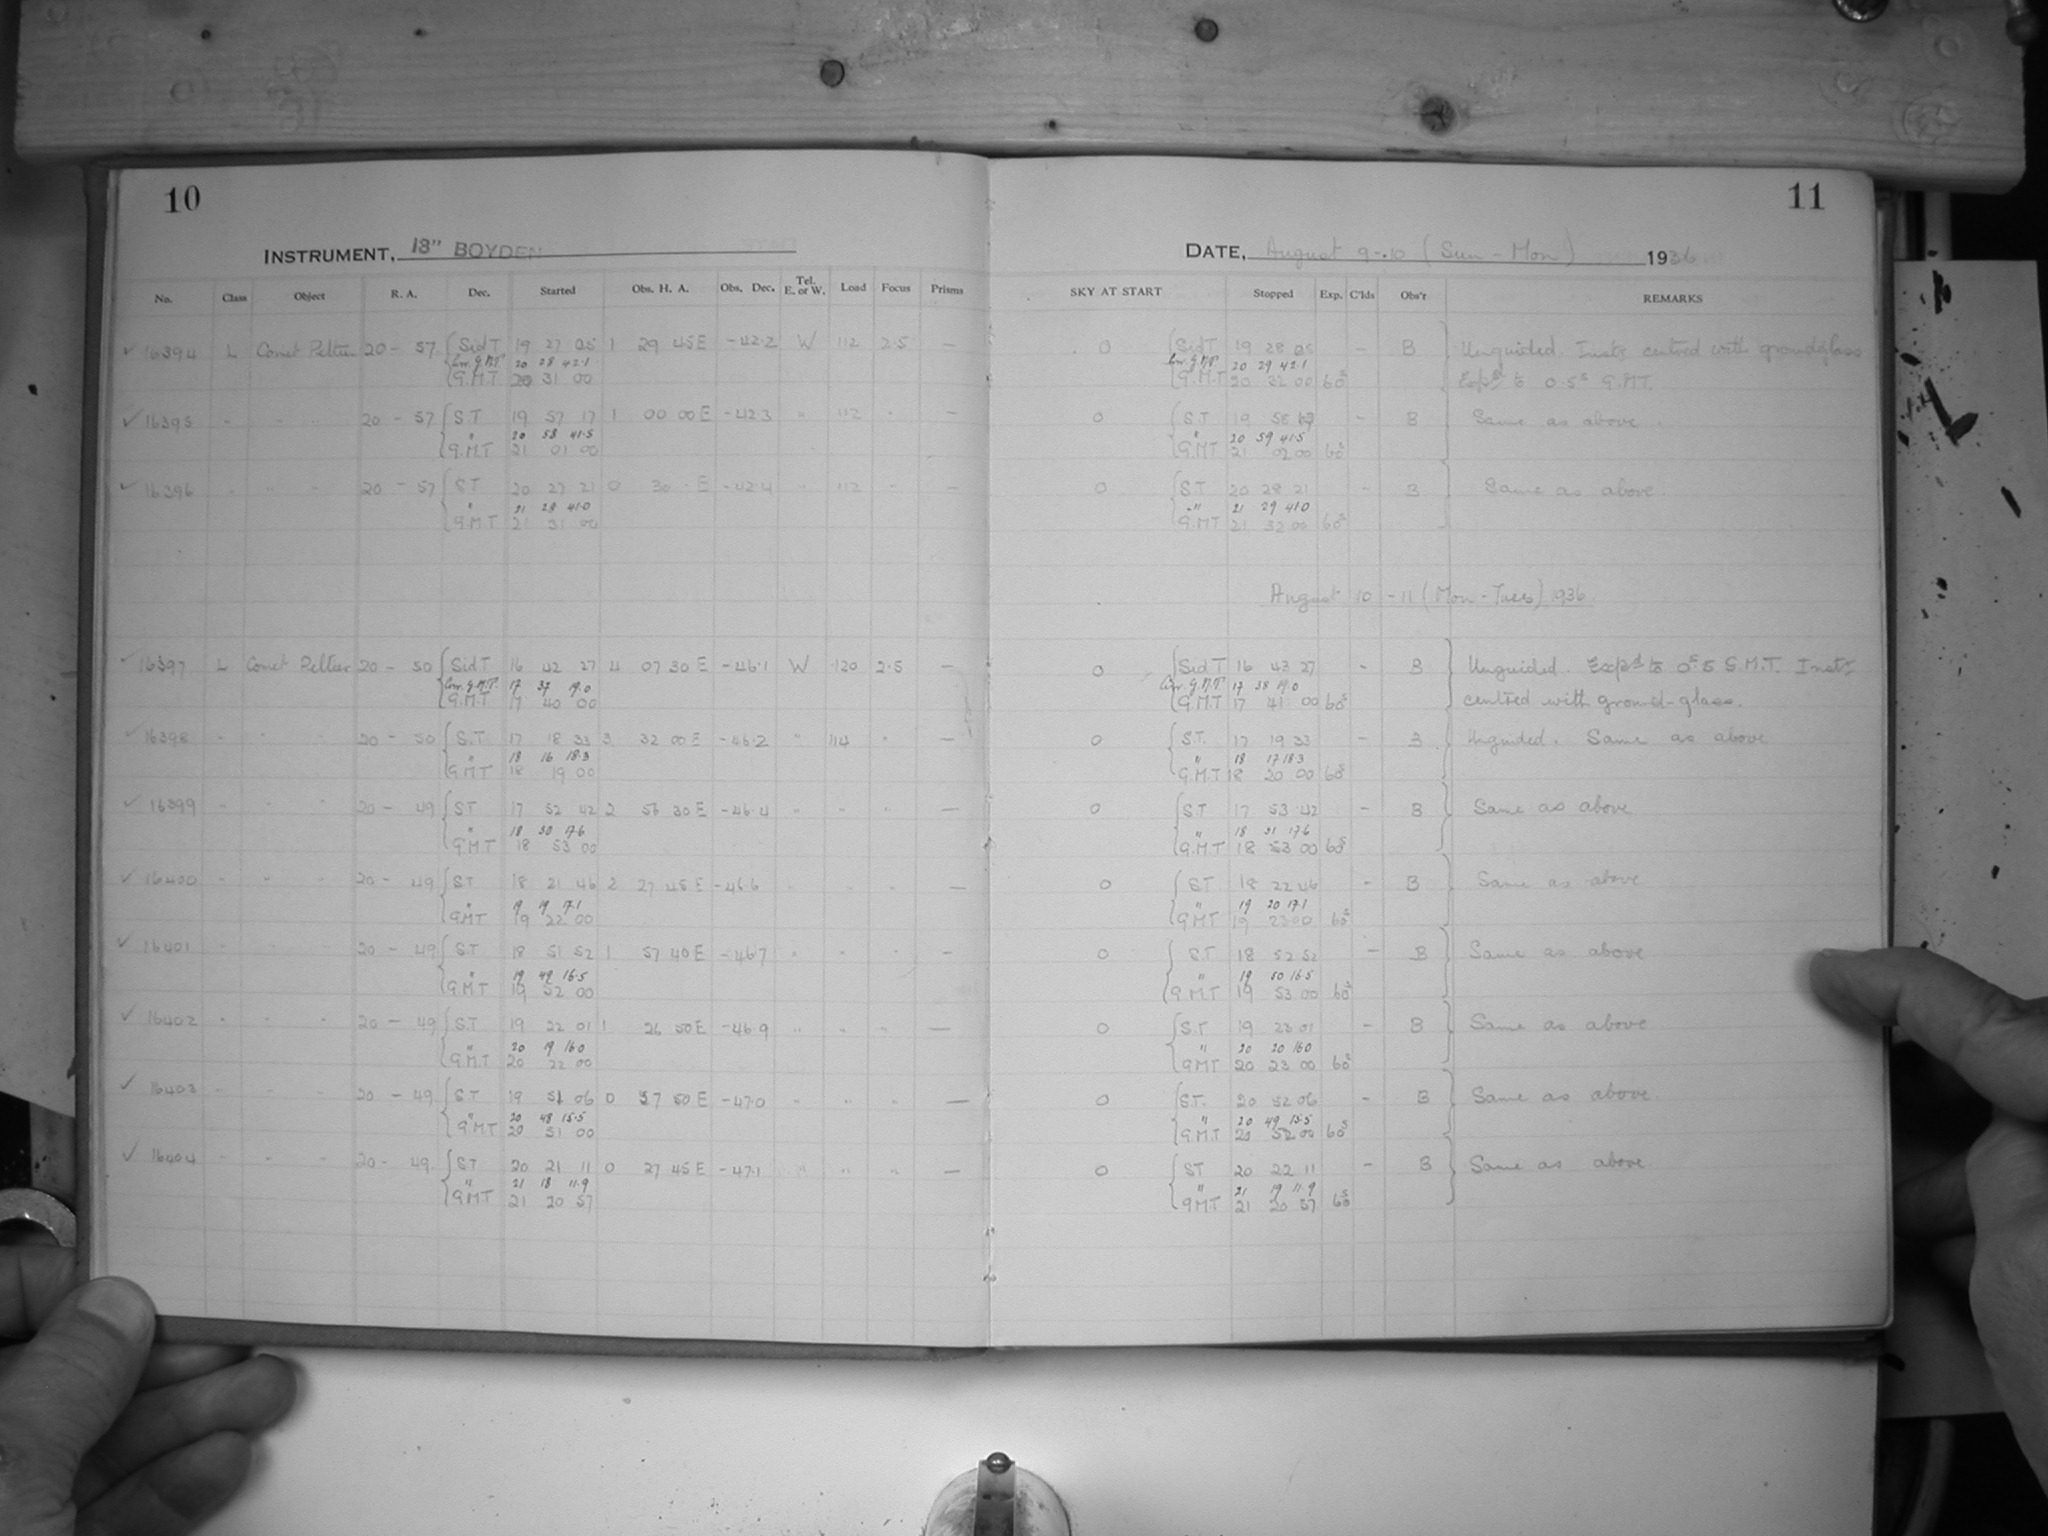 10
11
INSTRUMENT, 18" BOYDEN
DATE, August 9-10 (Sun - Mon) 1936
No. Class Object R. A. Dec. Started Obs. H. A. Obs. Dec. Tel. E. or W. Load Focus Prisms SKY AT START Stopped Exp. C'lds Obs'r REMARKS
✓ 16394 L Comet Peltier 20 - 57 Sid T 19 27 05 1 29 45 E -42.2 W 112 2.5 — 0 Sid T 19 28 05 - B Unguided. Instr. centred with groundglass
Corr. G.M.T. 20 28 42.1 Corr. G.M.T. 20 29 42.1
G.M.T 20 31 00 G.M.T 20 32 00 60s Exp'd to 0.5s G.M.T.
✓ 16395 - " - 20 - 57 S.T 19 57 17 1 00 00 E -42.3 " 112 " — 0 S.T 19 58 17 - B Same as above.
" 20 58 41.5 " 20 59 41.5
G.M.T 21 01 00 G.M.T 21 02 00 60s
✓ 16396 - " - 20 - 57 ST 20 27 21 0 30 - E -42.4 " 112 " — 0 S.T 20 28 21 - B Same as above.
" 21 28 41.0 " 21 29 41.0
G.M.T 21 31 00 G.M.T 21 32 00 60s
August 10 - 11 (Mon - Tues) 1936.
✓ 16397 L Comet Peltier 20 - 50 Sid T 16 42 27 4 07 30 E -46.1 W 120 2.5 — 0 Sid T 16 43 27 - B Unguided. Exp'd to 0s.5 G.M.T. Instr.
Corr. G.M.T. 17 37 19.0 Corr. G.M.T 17 38 19.0
G.M.T 17 40 00 G.M.T 17 41 00 60s centred with ground-glass.
✓ 16398 - " - 20 - 50 S.T 17 18 33 3 32 00 E -46.2 " 114 " — 0 S.T. 17 19 33 - B Unguided. Same as above
" 18 16 18.3 " 18 17 18.3
G.M.T 18 19 00 G.M.T 18 20 00 60s
✓ 16399 - " " 20 - 49 ST 17 52 42 2 56 30 E -46.4 " " " — 0 ST 17 53 42 - B Same as above
" 18 50 17.6 " 18 51 17.6
G.M.T 18 53 00 G.M.T 18 53 00 60s
✓ 16400 - " - 20 - 49 ST 18 21 46 2 27 45 E -46.6 - - - — 0 S.T 18 22 46 - B Same as above
" 19 19 17.1 " 19 20 17.1
GMT 19 22 00 GMT 19 23 00 60s
✓ 16401 - - - 20 - 49 S.T 18 51 52 1 57 40 E -46.7 " - " — 0 S.T 18 52 52 - B Same as above
" 19 49 16.5 " 19 50 16.5
G.M.T 19 52 00 G.M.T 19 53 00 60s
✓ 16402 - - - 20 - 49 S.T 19 22 01 1 26 50 E -46.9 " " " — 0 S.T 19 23 01 - B Same as above
" 20 19 16.0 " 20 20 16.0
G.M.T 20 22 00 GMT 20 23 00 60s
✓ 16403 - - - 20 - 49 S.T 19 51 06 0 57 50 E -47.0 " " " — 0 S.T. 20 52 06 - B Same as above
" 20 48 15.5 " 20 49 15.5
G.M.T 20 51 00 G.M.T 20 52 00 60s
✓ 16404 - - - 20 - 49 ST 20 21 11 0 27 45 E -47.1 " " " — 0 ST 20 22 11 - B Same as above
" 21 18 11.9 " 21 19 11.9
G.M.T 21 20 57 G.M.T 21 20 57 60s